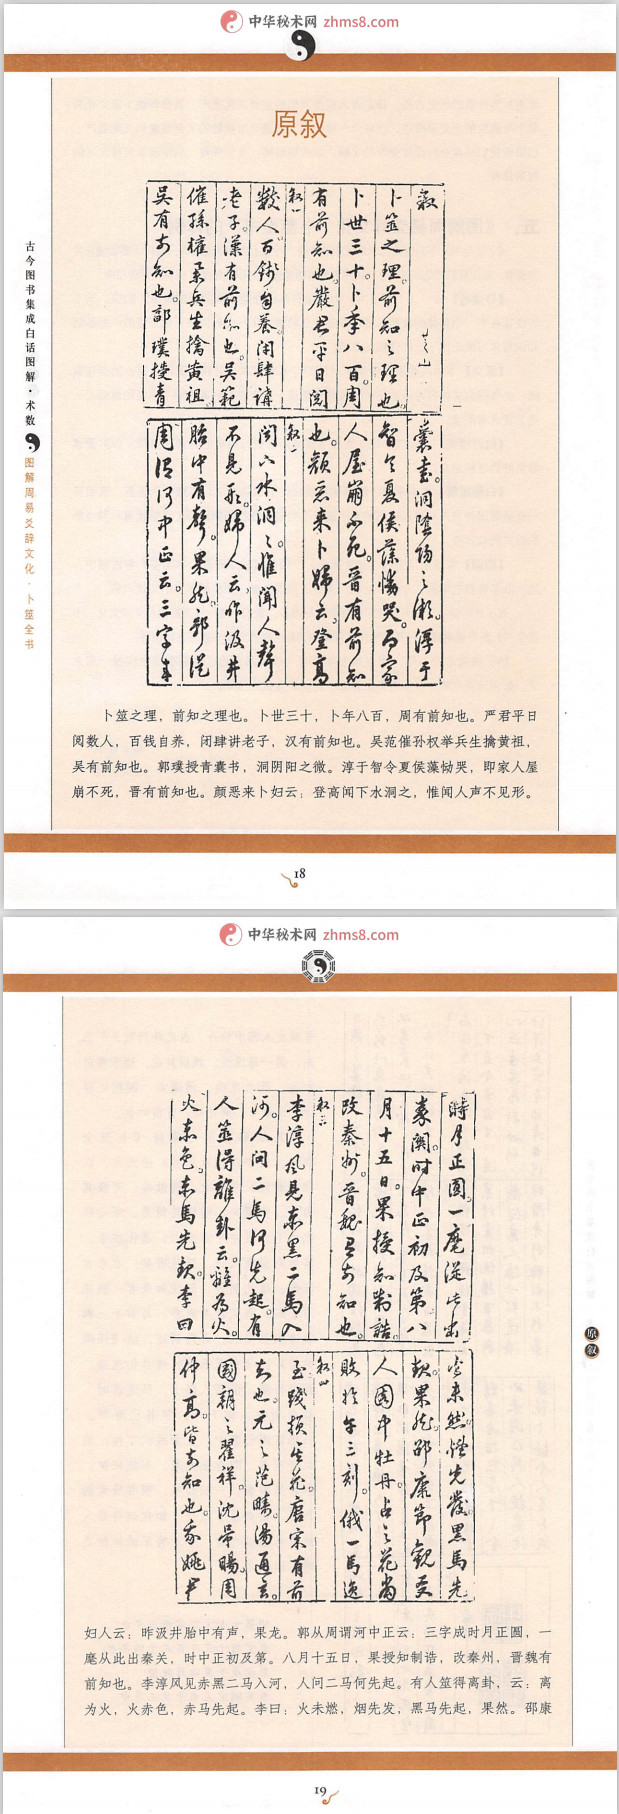 中华秘术网 zhms8.com
原叙
古今图书集成白话图解·术数
图解周易爻辞文化·卜筮全书
叙
卜筮之理。前知之理也。
卜世三十。卜年八百。周
有前知也。严君平日阅
叙一
数人百钱自养。闭肆讲
老子。汉有前知也。吴范
催孙权举兵生擒黄祖。
吴有前知也。郭璞授青
囊书。洞阴阳之微。淳于
智令夏侯藻恸哭。而家
人屋崩不死。晋有前知
也。颜恶来卜妇云。登高
叙二
闻下水洞之。惟闻人声
不见形。妇人云。昨汲井
胎中有声。果龙。郭从
周谓河中正云。三字成
卜筮之理，前知之理也。卜世三十，卜年八百，周有前知也。严君平日
阅数人，百钱自养，闭肆讲老子，汉有前知也。吴范催孙权举兵生擒黄祖，
吴有前知也。郭璞授青囊书，洞阴阳之微。淳于智令夏侯藻恸哭，即家人屋
崩不死，晋有前知也。颜恶来卜妇云：登高闻下水洞之，惟闻人声不见形。
18
中华秘术网 zhms8.com
原叙
时月正圆。一麾从此出
秦关。时中正初及第。八
月十五日。果授知制诰。
改秦州。晋魏有前知也。
叙三
李淳风见赤黑二马入
河。人问二马何先起。有
人筮得离卦云。离为火。
火赤色。赤马先起。李曰
火未然。烟先发。黑马先
起。果然。邵康节观
人园中牡丹。占之。花当
败于午三刻。俄一马逸
叙四
至践损其花。唐宋有前
知也。元之范畴。汤通玄。
国朝之翟祥。沈景旸。周
仲高。皆前知也。我姚
妇人云：昨汲井胎中有声，果龙。郭从周谓河中正云：三字成时月正圆，一
麾从此出秦关，时中正初及第。八月十五日，果授知制诰，改秦州，晋魏有
前知也。李淳风见赤黑二马入河，人问二马何先起。有人筮得离卦，云：离
为火，火赤色，赤马先起。李曰：火未燃，烟先发，黑马先起，果然。邵康
19